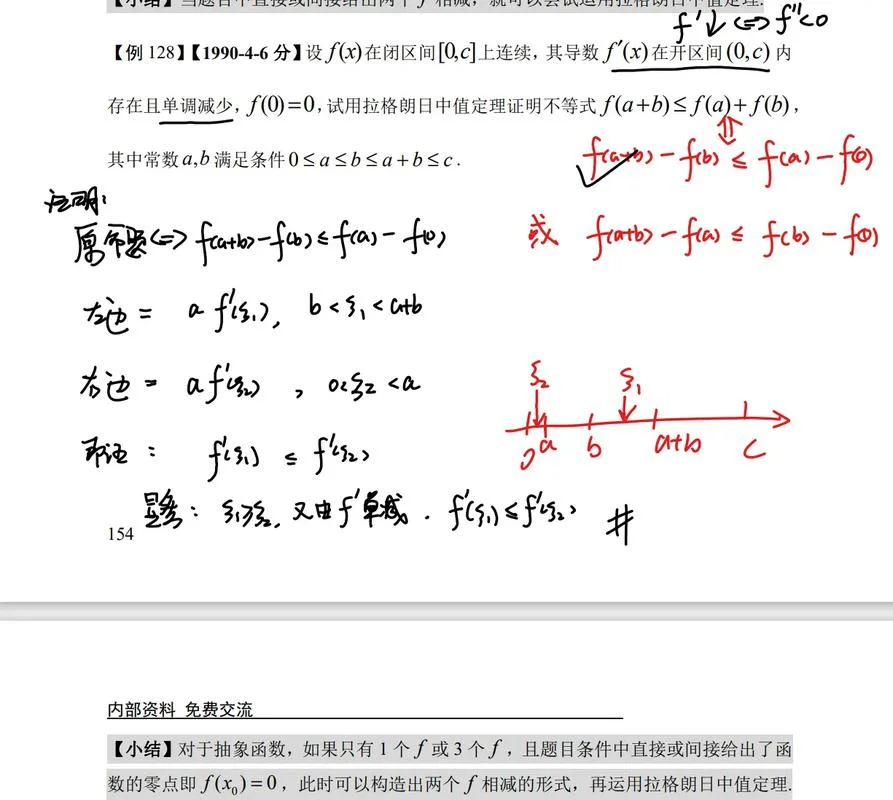 【小结】当题目中直接或间接给出两个 f 相减，就可以尝试运用拉格朗日中值定理.
f'↓ <=> f''<0
【例 128】【1990-4-6 分】设 f(x) 在闭区间[0,c]上连续，其导数 f'(x) 在开区间 (0,c) 内
存在且单调减少，f(0)=0，试用拉格朗日中值定理证明不等式 f(a+b)≤f(a)+f(b)，
其中常数 a,b 满足条件 0≤a≤b≤a+b≤c.
f(a+b)-f(b) ≤ f(a)-f(0)
或 f(a+b)-f(a) ≤ f(b)-f(0)
证明:
原命题<=> f(a+b)-f(b)≤f(a)-f(0)
左边 = a f'(ξ1), b<ξ1<a+b
右边 = a f'(ξ2), 0<ξ2<a
即证: f'(ξ1) ≤ f'(ξ2)
显然: ξ1≥ξ2, 又由f'单减. f'(ξ1)≤f'(ξ2) #
ξ2 ξ1
0 a b a+b c
154
内部资料 免费交流
【小结】对于抽象函数，如果只有 1 个 f 或 3 个 f，且题目条件中直接或间接给出了函
数的零点即 f(x₀)=0，此时可以构造出两个 f 相减的形式，再运用拉格朗日中值定理.